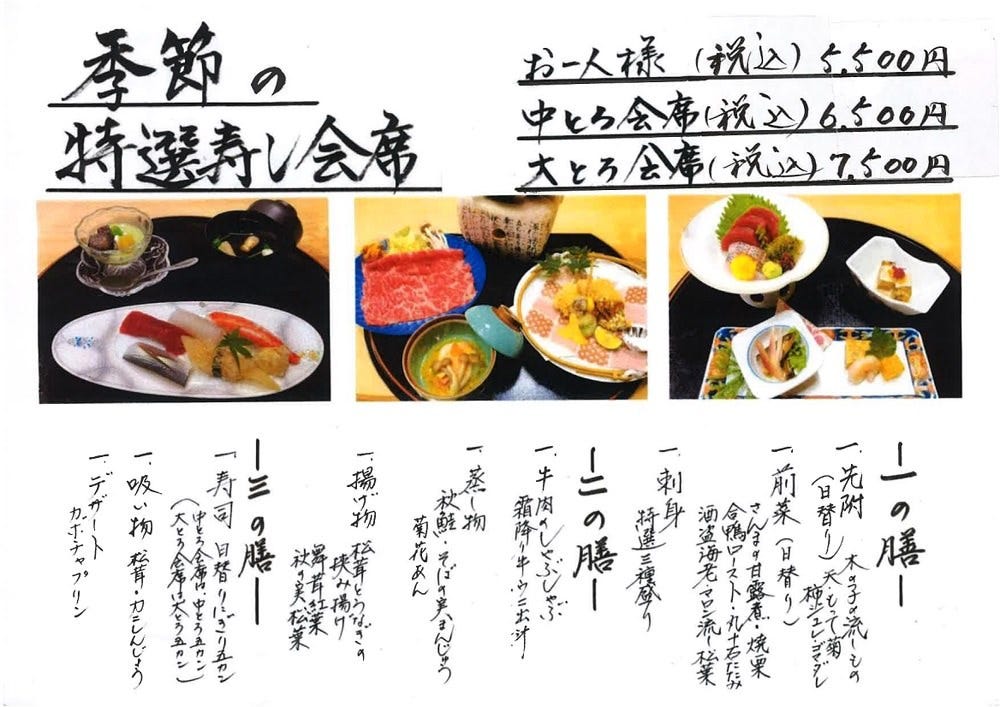 季節の
特選寿し会席
お一人様(税込)5,500円
中とろ会席(税込)6,500円
大とろ会席(税込)7,500円
一の膳
一、先附 木の子の流しもの
(日替り)天・もって菊
柿ジュレ・ゴマダレ
一、前菜(日替り)
さんまの甘露煮・焼栗
合鴨ロースト・丸十石だたみ
酒盗海老マロン流し松葉
一、刺身
特選三種盛り
二の膳
一、牛肉のしゃぶしゃぶ
霜降り牛・ウニ出汁
一、蒸し物
秋鮭・そばの実まんじゅう
菊花あん
一、揚げ物 松茸とうなぎの
挟み揚げ
舞茸紅葉
秋の実松葉
三の膳
一、寿司 日替りにぎり五カン
(中とろ会席は中とろ五カン)
(大とろ会席は大とろ五カン)
一、吸い物 松茸・カニしんじょう
一、デザート
カボチャプリン